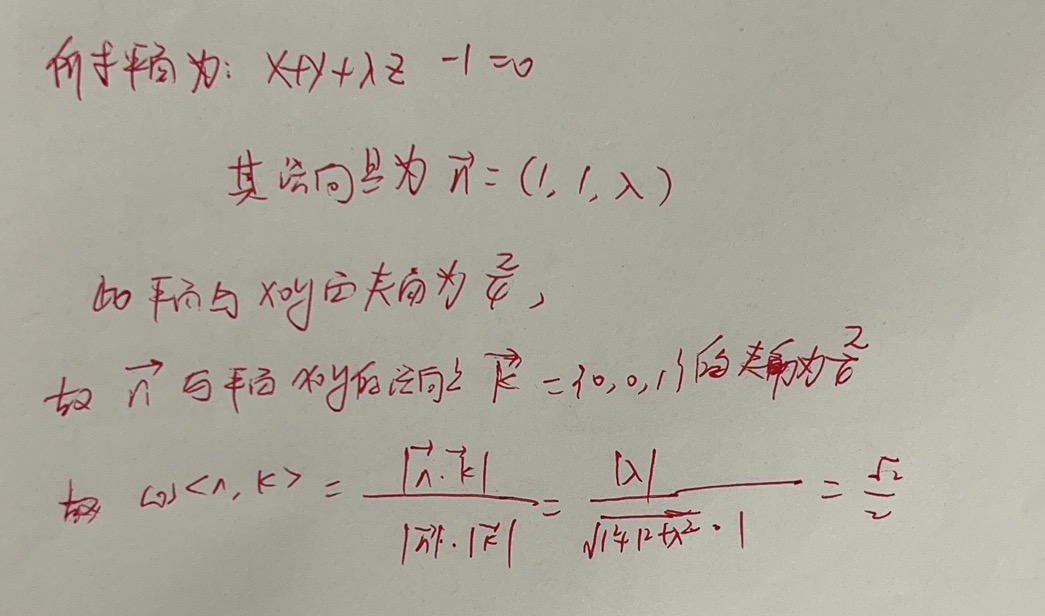 所求平面为: x+y+λz -1=0
其法向量为 n⃗=(1, 1, λ)
面与xoy面夹角为 π/4,
故 n⃗ 与平面xoy的法向量 k⃗ ={0,0,1}的夹角为
故 cos<n, k> = |n⃗·k⃗| / |n⃗|·|k⃗| = |λ| / √(1²+1²+λ²)·1 = √2/2